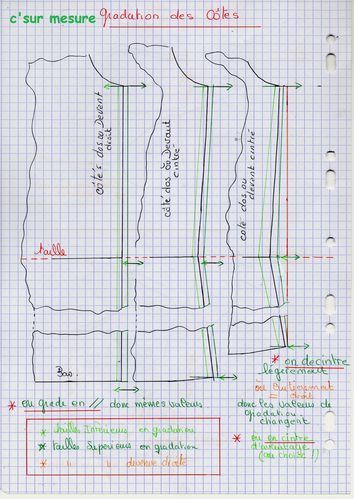 c'sur mesure
gradation des Côtés
côtés dos ou Devant
droit
côté dos ou Devant
cintré
coté dos ou
devant cintré
taille
Bas
* on decintre
legerement
ou
= droit
* ou grade en // donc mêmes valeurs
donc les valeurs de
gradation
changent
* tailles Inferieurs en gradation
* tailles Superieurs en gradation
* " " devenue droite
* ou on cintre
d'avantage
(au choix !)